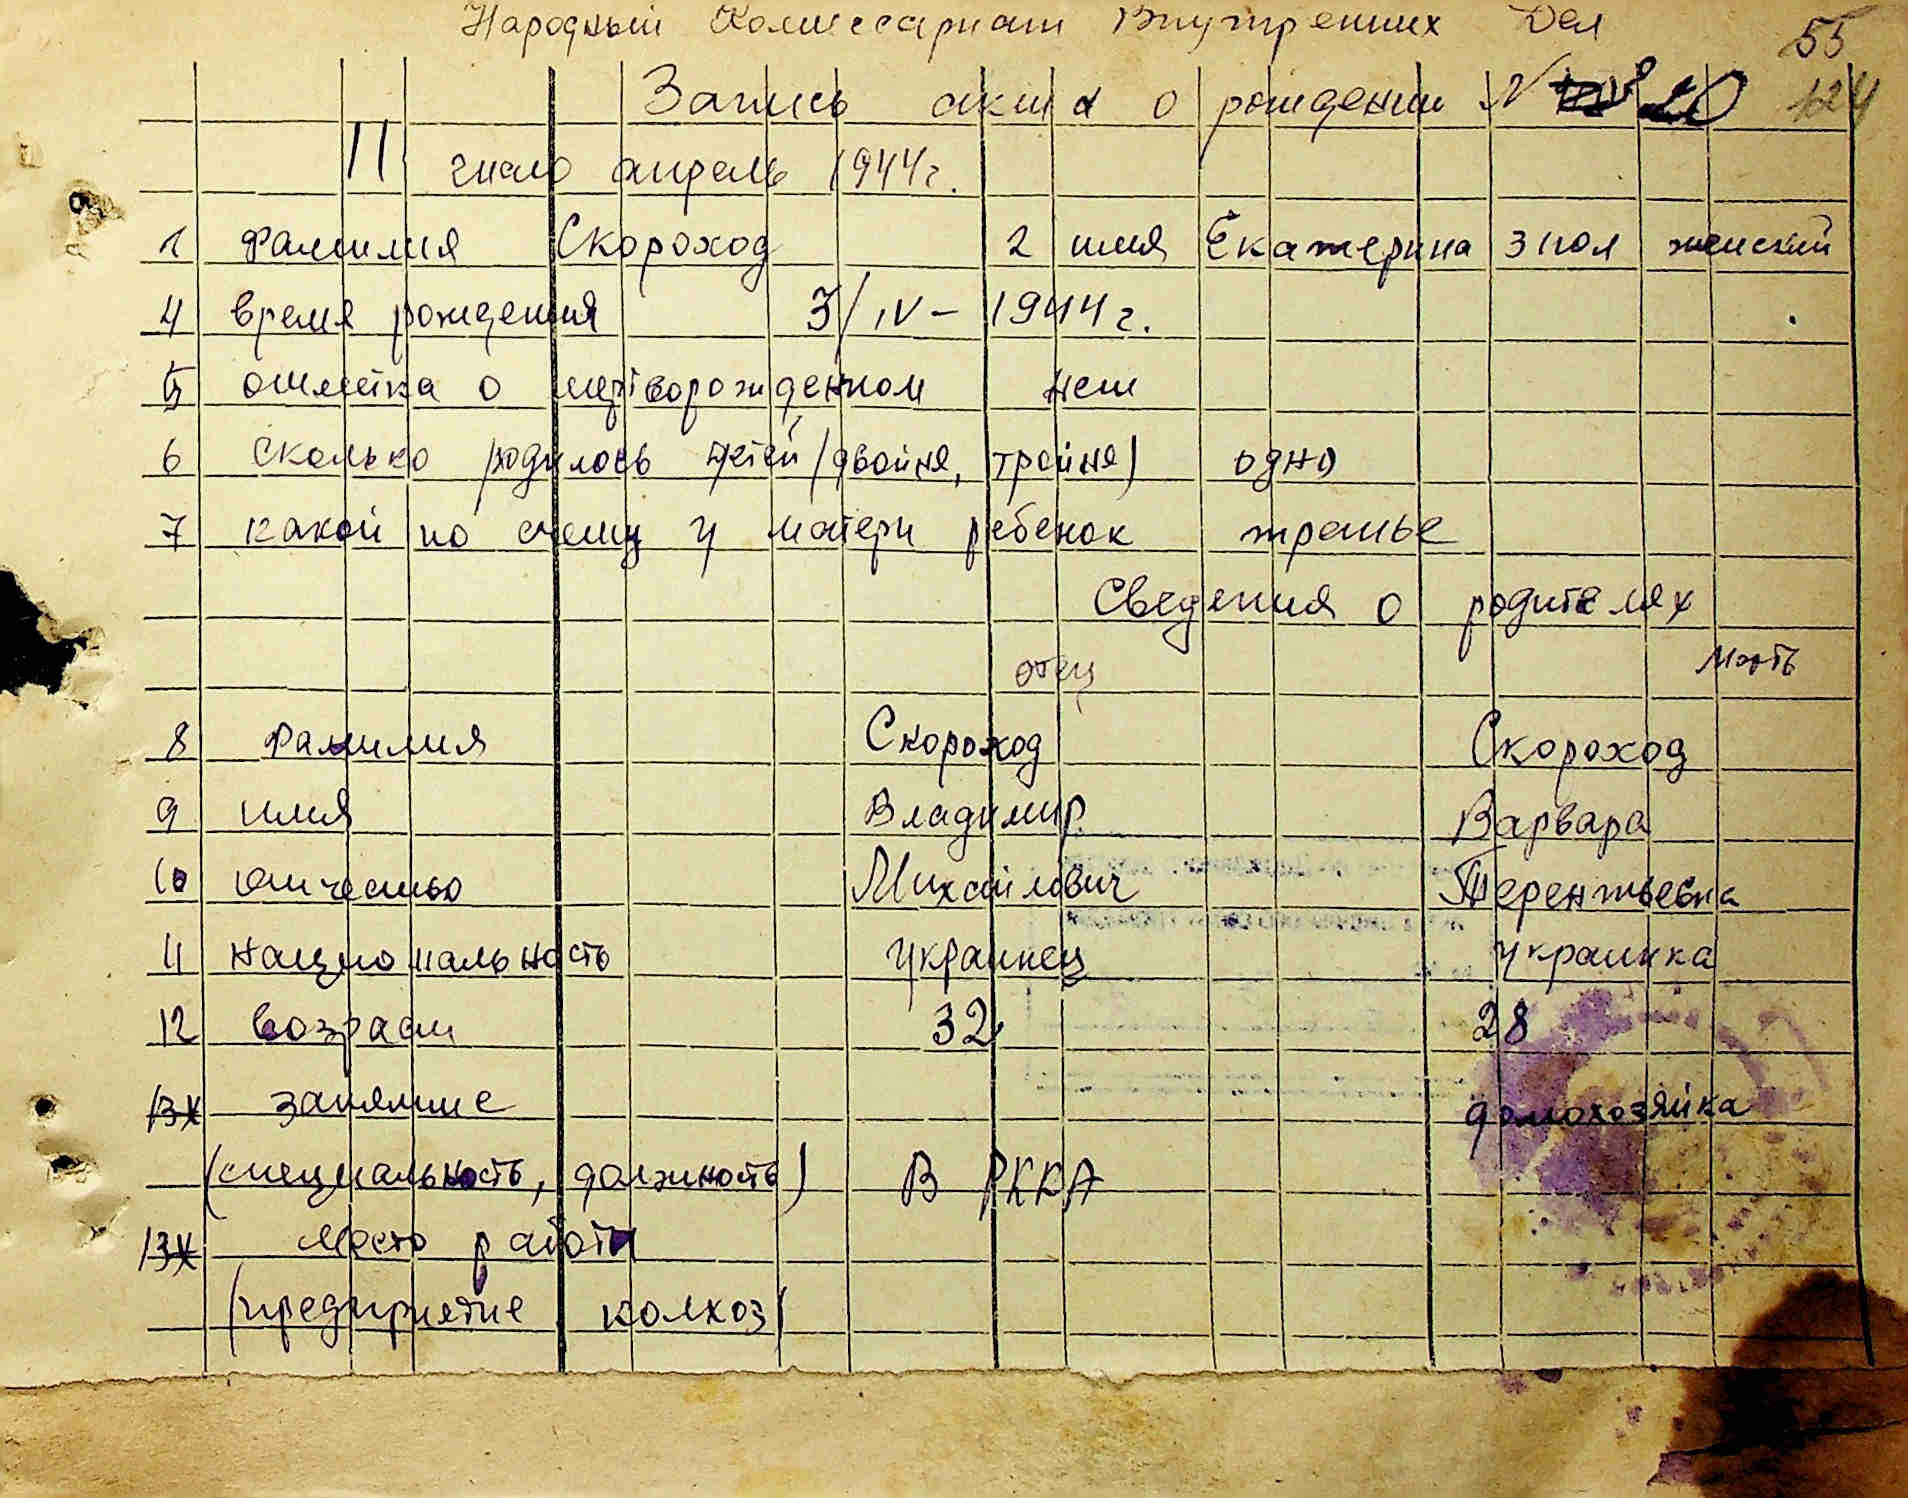 Народный Комиссариат Внутренних Дел
55
Запись акта о рождении N 20
124
11 число апрель 1944 г.
1 фамилия Скороход 2 имя Екатерина 3 пол женский
4 время рождения 3/IV - 1944 г.
5 отметка о мертворожденном нет
6 сколько родилось детей (двойня, тройня) одно
7 какой по счету у матери ребенок третье
Сведения о родителях
отец мать
8 фамилия Скороход Скороход
9 имя Владимир Варвара
10 отчество Михайлович Терентьевна
11 национальность украинец украинка
12 возраст 32 28
13 занятие домохозяйка
(специальность, должность) В РККА
13 место работы
(предприятие колхоз)